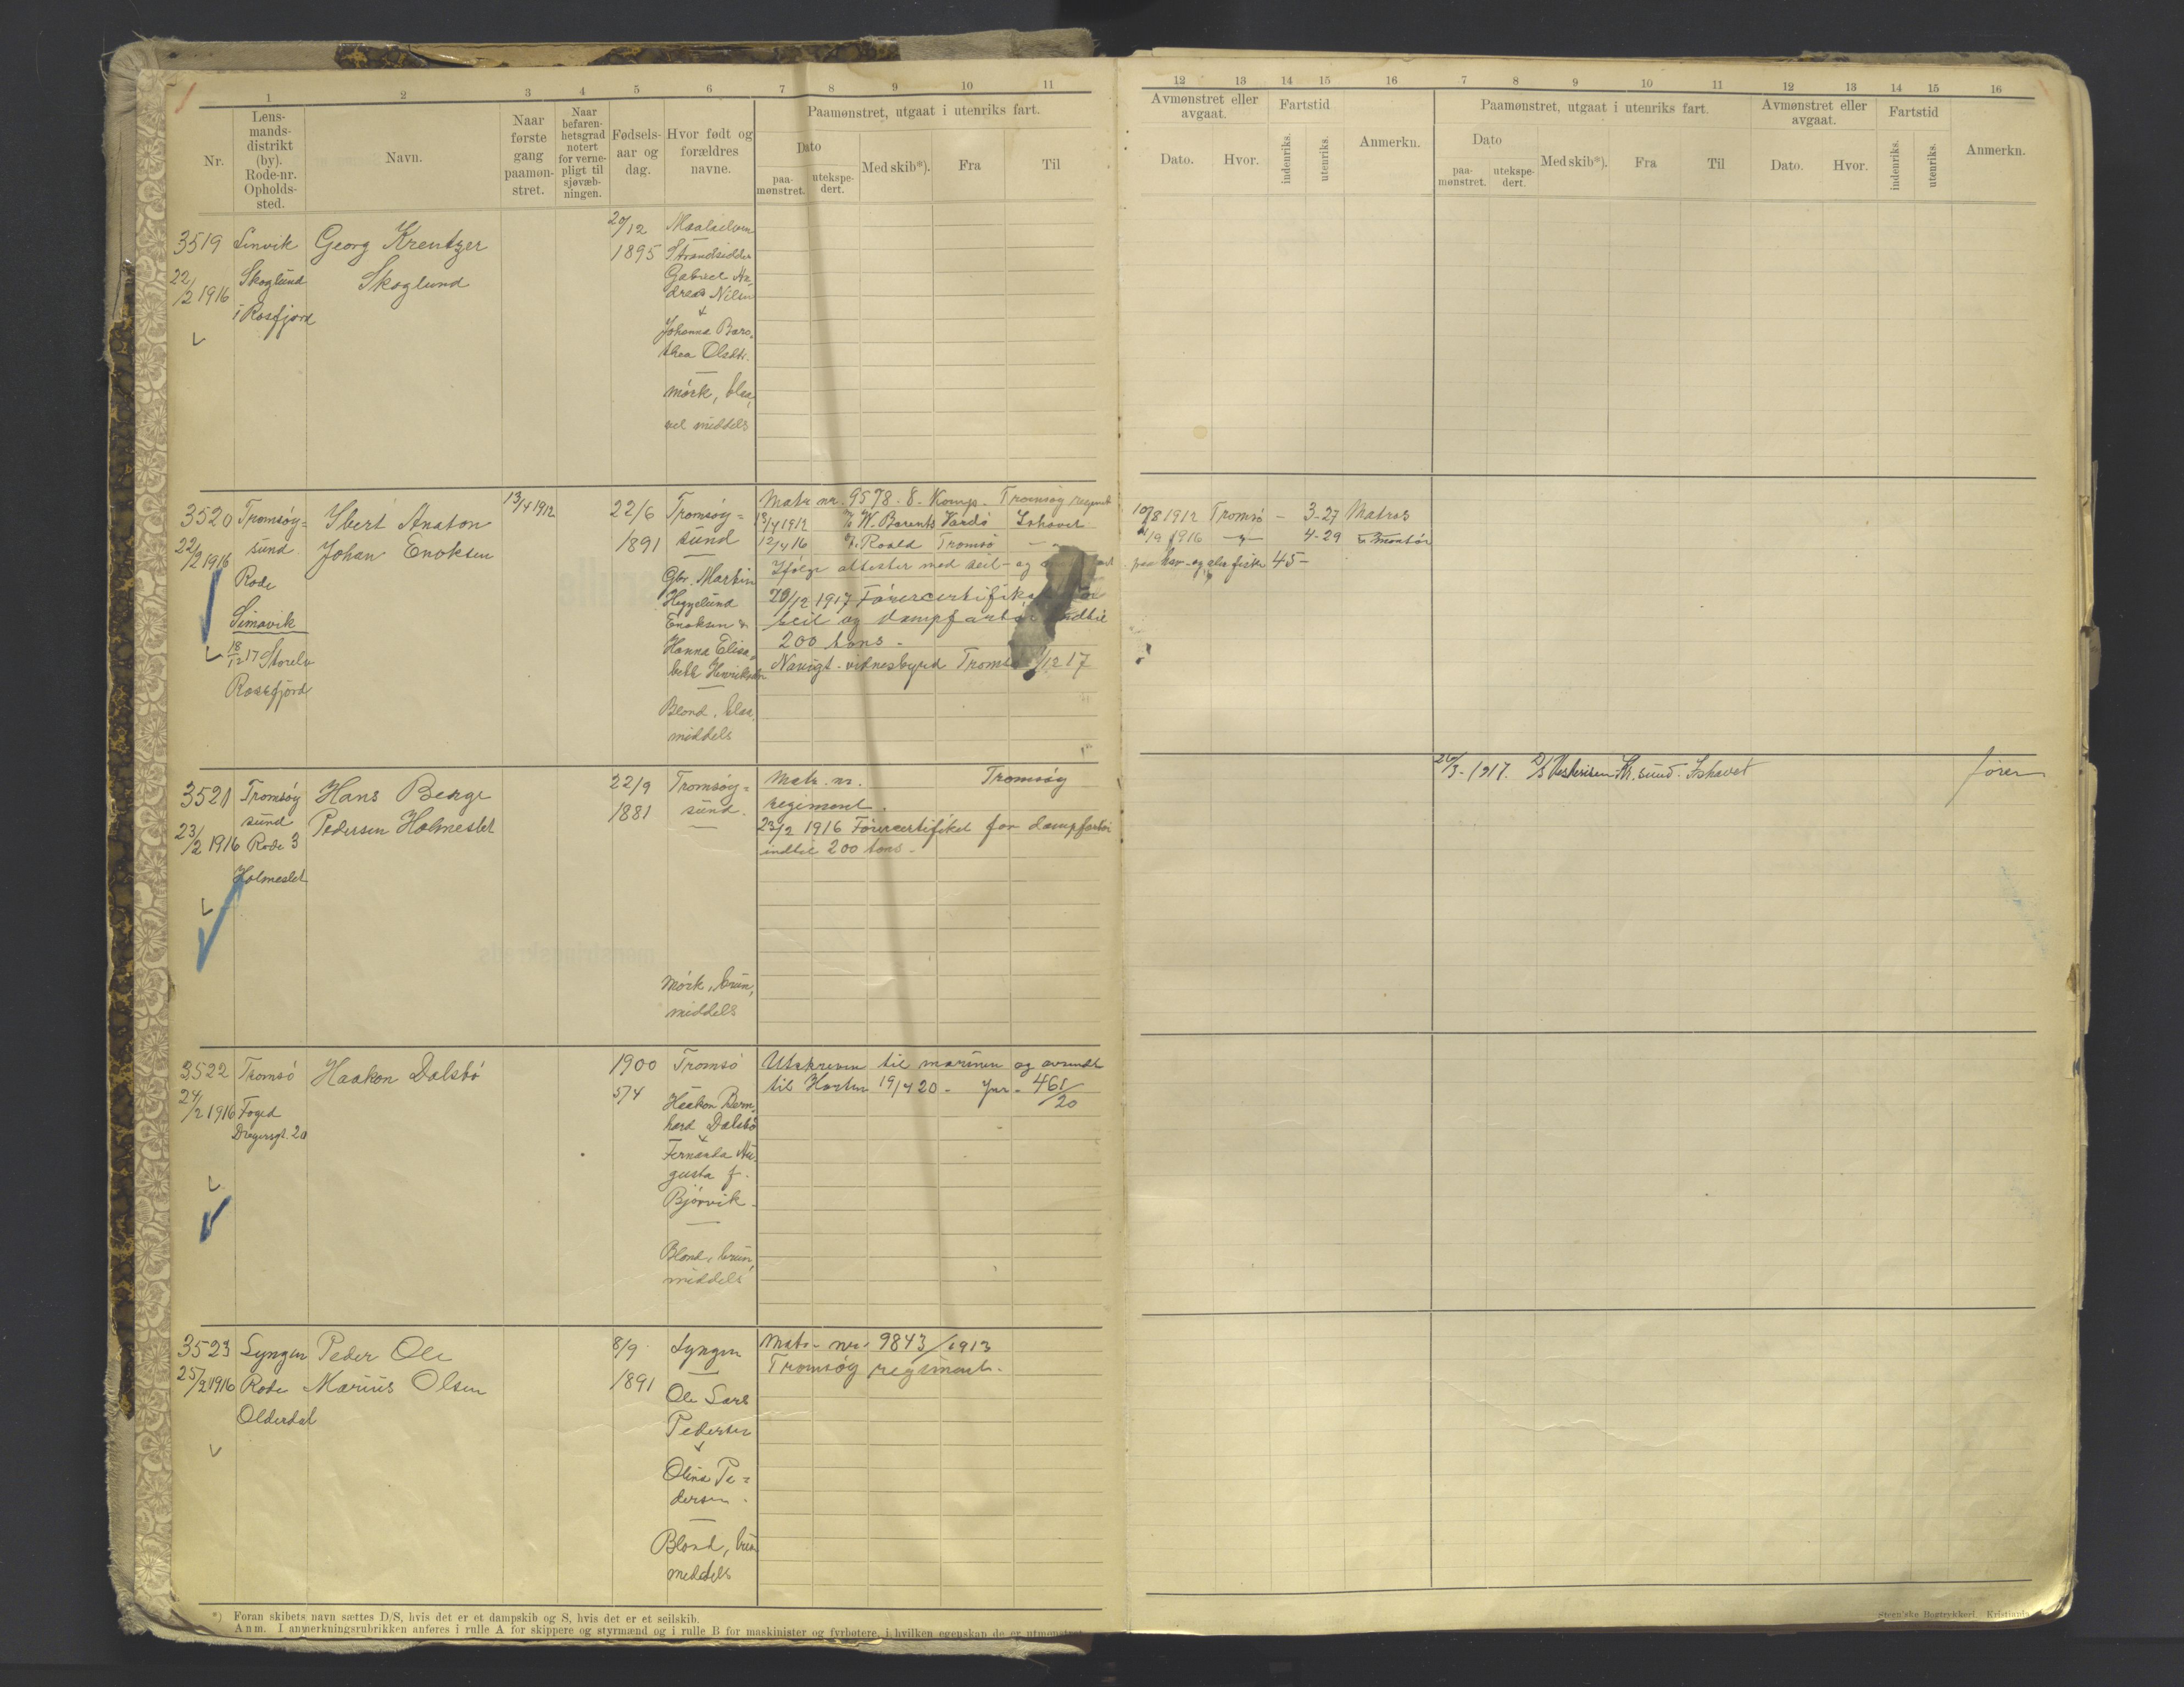 1 2 3 4 5 6 7 8 9 10 11
Nr.
Lens-
mands-
distrikt
(by).
Rode-nr.
Opholds-
sted.
Navn.
Naar
første
gang
paamøn-
stret.
Naar
befaren-
hetsgrad
notert
for verne-
pligt til
sjøvæb-
ningen.
Fødsels-
aar og
dag.
Hvor født og
forældres
navne.
Paamønstret, utgaat i utenriks fart.
Dato
paa-
mønstret.
utekspe-
dert.
Med skib*).
Fra
Til
3519
22/2 1916
Lenvik
Skoglund
i Rosfjord
Georg Krentzer
Skoglund
20/12
1895
Maalselven
Strandsidder
Gabriel An-
dreas Nilsen
&
Johanna Baro-
thea Olsdtr.
mörk, blaa,
vel middels
3520
22/2 1916
Tromsöy=
sund
Rode
Simavik
18/12 17 Storelv
Rossfjord
Ibert Anaton
Johan Enoksen
13/4 1912
22/6
1891
Tromsöy=
sund
Gbr. Martin
Heggelund
Enoksen &
Hanna Elisa-
beth Henriksdtr
Blond, blaa,
middels
Matr. nr. 9578. 8. Komp. Tromsöy regiment
13/4 1912 W. Barents Vardö Ishavet
12/4 16 Roald Tromsö — " —
Ifölge attester med seil- og
20/12 1917 Förercertifikat
seil og dampfartöi indtil
200 tons -
Navigt. vidnesbyrd Tromsö /12 17
3521
23/2 1916
Tromsöy
sund
Rode 3
Holmeslet
Hans Berge
Pedersen Holmeslet
22/9
1881
Tromsöy=
sund.
mörk, brun,
middels
Matr. nr. Tromsöy
regiment.
23/2 1916 Förercertifikat for dampfartöi
indtil 200 tons -
3522
24/2 1916
Tromsö
Foged
Dreyersgt. 20
Haakon Dalsbö
1900
5/4
Tromsö
Haakon Bern-
hard Dalsbö
&
Fernanda Au-
gusta f.
Björvik -
Blond, brun,
middels
Utskreven til marinen og avsendt
til Horten 19/4 20 - Jnr. 461/20
3523
25/2 1916
Lyngen
Rode
Olderdal
Peder Ole
Marius Olsen
8/9
1891
Lyngen
Ole Lars
Pedersen
&
Olina Pe=
dersen -
Blond, brun
middels
Matr. nr. 9843/1913
Tromsöy regiment.
*) Foran skibets navn sættes D/S, hvis det er et dampskib og S, hvis det er et seilskib.
Anm. I anmerkningsrubrikken anføres i rulle A for skippere og styrmænd og i rulle B for maskinister og fyrbøtere, i hvilken egenskap de er utmønstret
12 13 14 15 16 7 8 9 10 11 12 13 14 15 16
Avmønstret eller
avgaat.
Dato.
Hvor.
Fartstid
indenriks.
utenriks.
Anmerkn.
Paamønstret, utgaat i utenriks fart.
Dato
paa-
mønstret.
utekspe-
dert.
Med skib*).
Fra
Til
Avmønstret eller
avgaat.
Dato.
Hvor.
Fartstid
indenriks.
utenriks.
Anmerkn.
10/8 1912 Tromsö - 3-27 Matros
/9 1916 — " — 4-29
hav- og fiske 45 -
20/3 - 1917. D/S Vesterisen Kr.sund. Ishavet fører
Steen'ske Bogtrykkeri, Kristiania